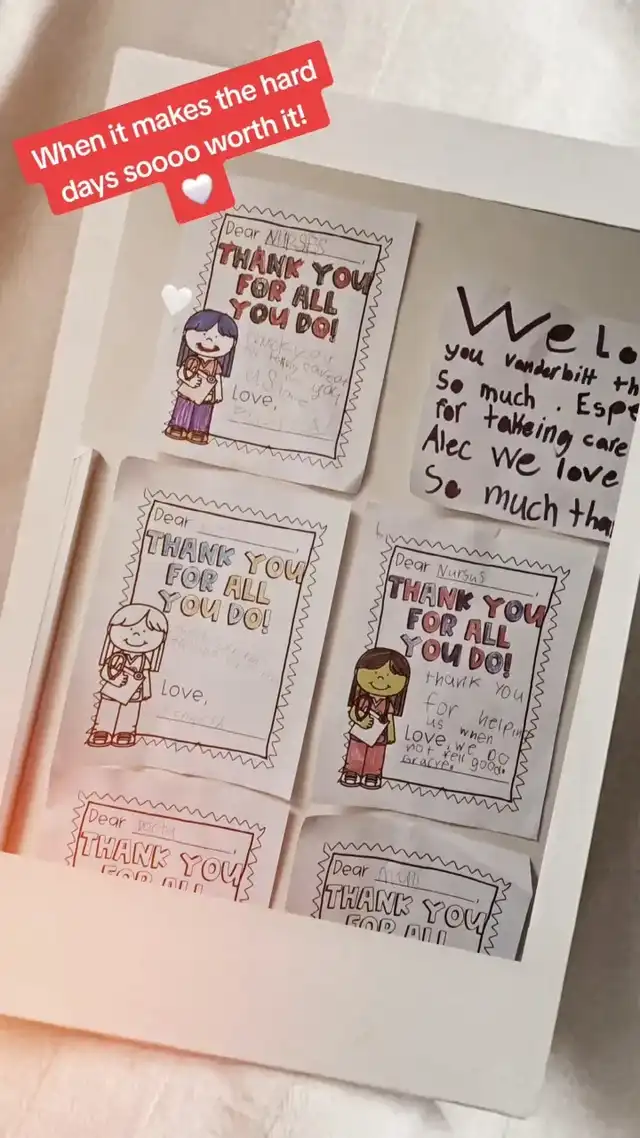 When it makes the hard
days soooo worth it!
Dear NURSES
THANK YOU
FOR ALL
YOU DO!
Love,
We Lo
you Vanderbilt th
So much. Espe
for takeing care
Alec We love
So much tha
Dear
THANK YOU
FOR ALL
YOU DO!
Love,
Dear Nursus
THANK YOU
FOR ALL
YOU DO!
thank you
for helping
us when
Love, we Do
not fell good.
Gracye.
Dear
THANK YOU
FOR ALL
Dear
THANK YOU
FOR ALL